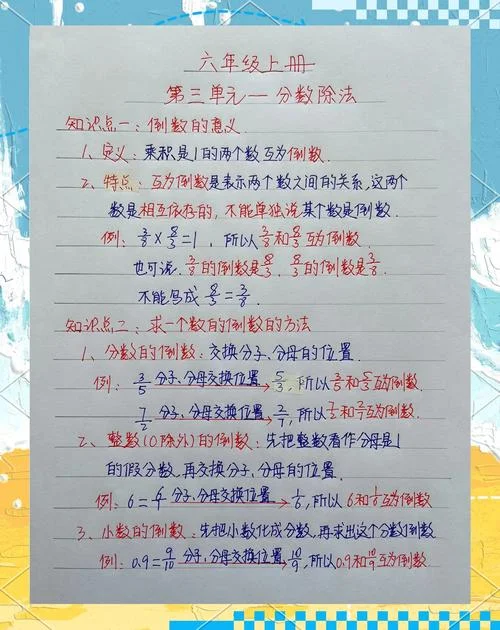 六年级上册
第三单元一分数除法
知识点一：倒数的意义
1、定义：乘积是1的两个数互为倒数.
2、特点：互为倒数是表示两个数之间的关系,这两个
数是相互依存的，不能单独说某个数是倒数.
例：3/8×8/3=1，所以3/8和8/3互为倒数.
也可说：3/8的倒数是8/3，8/3的倒数是3/8.
不能写成 8/3=3/8.
知识点二：求一个数的倒数的方法
1、分数的倒数：交换分子、分母的位置.
例：3/5 分子、分母交换位置 5/3，所以3/5和5/3互为倒数.
7/2 分子、分母交换位置 2/7，所以7/2和2/7互为倒数.
2、整数(0除外)的倒数：先把整数看作分母是1
的假分数,再交换分子、分母的位置.
例：6=6/1 分子、分母交换位置 1/6，所以6和1/6互为倒数
3、小数的倒数：先把小数化成分数，再求出这个分数倒数
例：0.9=9/10 分子、分母交换位置 10/9，所以0.9和10/9互为倒数